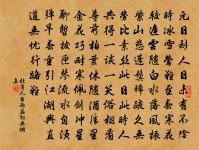 元日到人日未有不陰
時冰雪鶯難至春寒花
較遲雲隨白水落風振
紫山悲蓬鬢稀疏久無
勞比素絲此日此時人
共得一談一笑俗相看
尊前柏葉休隨酒勝裏
金花巧耐寒佩劍衝星
聊暫拔匣琴流水自須
彈早春重引江湖興直
道無憂行路難
杜甫人日兩篇詩